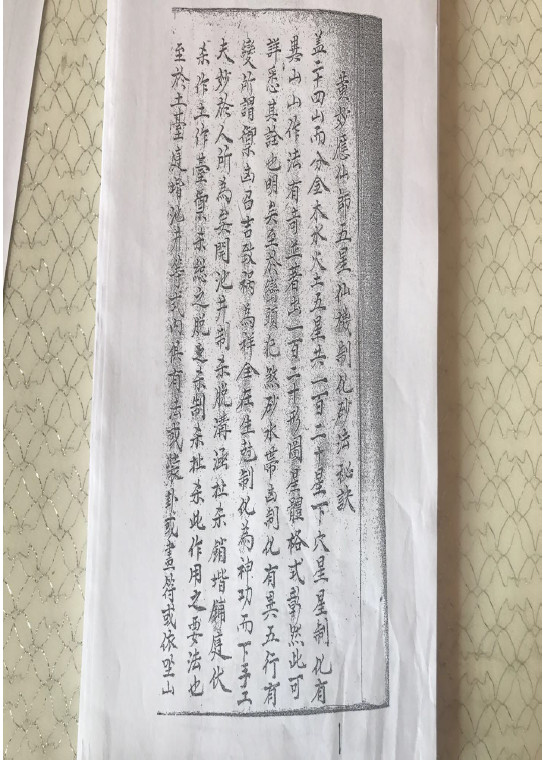 黃妙應仙師五星仙機制化砂法秘訣
蓋二十四山而分金木水火土五星共一百二十星下穴星星制化有
異山山作法有奇並著出一百二十形圖星體格式彰然此可
詳悉其詮也明矣至於巒頭犯煞砂水帶凶制化有異五行有
變所謂禦凶召吉啟禍為祥全在生尅制化為神功而下手工
夫妙於人所為矣開池井制杀脫溝涵杜杀銷堦鋪庭伏
杀作土作臺禦杀總之脫避杀制杀杜杀此作用之要法也
至於土臺庭堦池井等式內俱有法或裝卦或畫符或依坐山